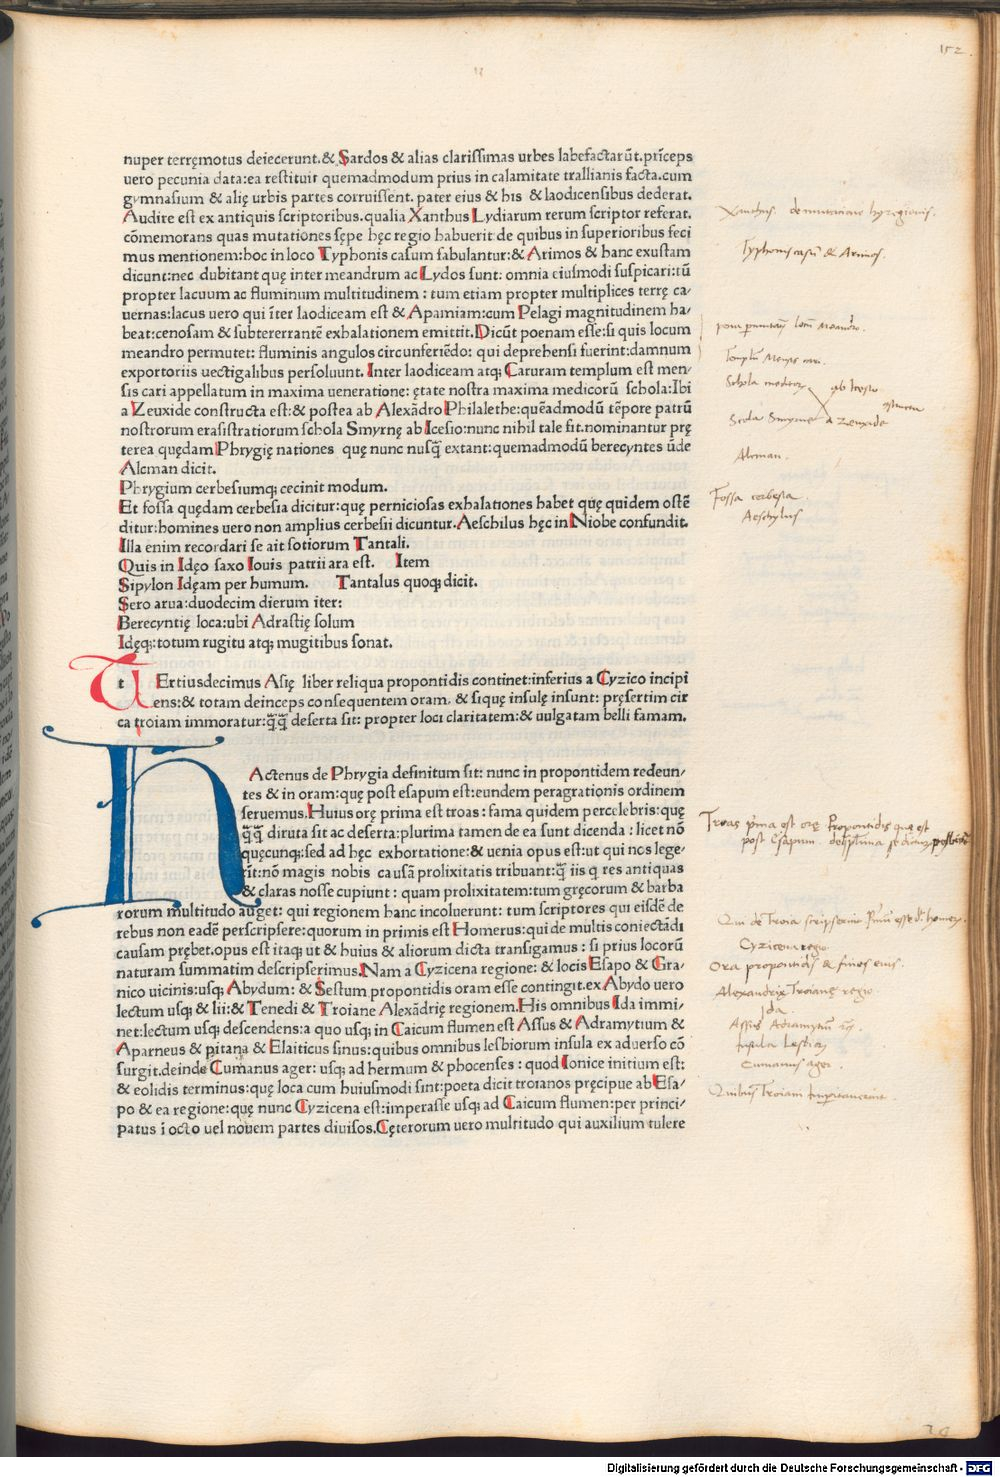 152
nuper terręmotus deiecerunt.& Sardos & alias clarissimas urbes labefactarūt.prīceps
uero pecunia data:ea restituit quemadmodum prius in calamitate trallianis facta.cum
gymnasium & alię urbis partes corruissent. pater eius & his & laodicensibus dederat.
Audire est ex antiquis scriptoribus.qualia Xanthus Lydiarum rerum scriptor referat.
cōmemorans quas mutationes sępe hęc regio habuerit de quibus in superioribus feci
mus mentionem:hoc in loco Typhonis casum fabulantur:& Arimos & hanc exustam
dicunt:nec dubitant quę inter meandrum ac Lydos sunt: omnia eiusmodi suspicari:tū
propter lacuum ac fluminum multitudinem : tum etiam propter multiplices terrę ca/
uernas:lacus uero qui īter laodiceam est & Apamiam:cum Pelagi magnitudinem ha/
beat:cenosam & subterrerrantē exhalationem emittit.Dicūt poenam esse:si quis locum
meandro permutet: fluminis angulos circunferiēdo: qui deprehensi fuerint:damnum
exportoriis uectigalibus persoluunt. Inter laodiceam atq; Caruram templum est men/
sis cari appellatum in maxima ueneratione: ętate nostra maxima medicorū schola:Ibi
a Zeuxide constructa est:& postea ab Alexādro Philalethe:quēadmodū tēpore patrū
nostrorum erasistratiorum schola Smyrnę ab Icesio:nunc nihil tale fit.nominantur prę
terea quędam Phrygię nationes quę nunc nusq̄ extant:quemadmodū berecyntes ūde
Alcman dicit.
Phrygium cerbesiumq; cecinit modum.
Et fossa quędam cerbesia dicitur:quę perniciosas exhalationes habet quę quidem ostē
ditur:homines uero non amplius cerbesii dicuntur.Aeschilus hęc in Niobe confundit.
Illa enim recordari se ait sotiorum Tantali.
Quis in Idęo saxo Iouis patrii ara est. Item
Sipylon Idęam per humum. Tantalus quoq; dicit.
Sero arua:duodecim dierum iter:
Berecyntię loca:ubi Adrastię solum
Idęq;:totum rugitu atq; mugitibus sonat.
t Ertiusdecimus Asię liber reliqua propontidis continet:inferius a Cyzico incipi
ens:& totam deinceps consequentem oram. & siquę insulę insunt: pręsertim cir
ca troiam immoratur:q̄q̄ deserta sit: propter loci claritatem:& uulgatam belli famam.
H Actenus de Phrygia definitum sit: nunc in propontidem redeun/
tes & in oram:quę post esapum est:eundem peragrationis ordinem
seruemus.Huius orę prima est troas : fama quidem percelebris:quę
q̄q̄ diruta sit ac deserta:plurima tamen de ea sunt dicenda : licet nō
quęcunq;:sed ad hęc exhortatione:& uenia opus est:ut qui nos lege/
rīt:nō magis nobis causā prolixitatis tribuant:q̄ iis q res antiquas
& claras nosse cupiunt : quam prolixitatem:tum gręcorum & barba
rorum multitudo auget: qui regionem hanc incoluerunt: tum scriptores qui eisdē de
rebus non eadē perscripsere:quorum in primis est Homerus:qui de multis coniectādi
causam prębet.opus est itaq; ut & huius & aliorum dicta transigamus : si prius locorū
naturam summatim descripserimus.Nam a Cyzicena regione: & locis Esapo & Gra/
nico uicinis:usq; Abydum: & Sestum propontidis oram esse contingit.ex Abydo uero
lectum usq; & lii:& Tenedi & Troiane Alexādrię regionem.His omnibus Ida immi/
net:lectum usq; descendens:a quo usq; in Caicum flumen est Assus & Adramytium &
Aparneus & pitana & Elaiticus sinus:quibus omnibus lesbiorum insula ex aduerso cō
surgit.deinde Cumanus ager: usq; ad hermum & phocenses : quod Ionice initium est:
& eolidis terminus:quę loca cum huiusmodi sint:poeta dicit troianos pręcipue ab Esa/
po & ea regione:quę nunc Cyzicena est:imperasse usq; ad Caicum flumen:per princi/
patus ī octo uel nouem partes diuisos.Cęterorum uero multitudo qui auxilium tulere
Xanthus de mutatione hui regionis.
Typhonis casū & Arimos.
Alcman.
Fossa cerbesia.
Aeschylus
Troas p̄ma est orę Propontidis quę est
Cyzicena regio
Ora propontidis & fines eius.
Alexandrię Troianę regio.
Ida.
Insula Lesbiorū
Cumanus ager.
Quibus Troiani Imperitauerint.
Digitalisierung gefördert durch die Deutsche Forschungsgemeinschaft - DFG